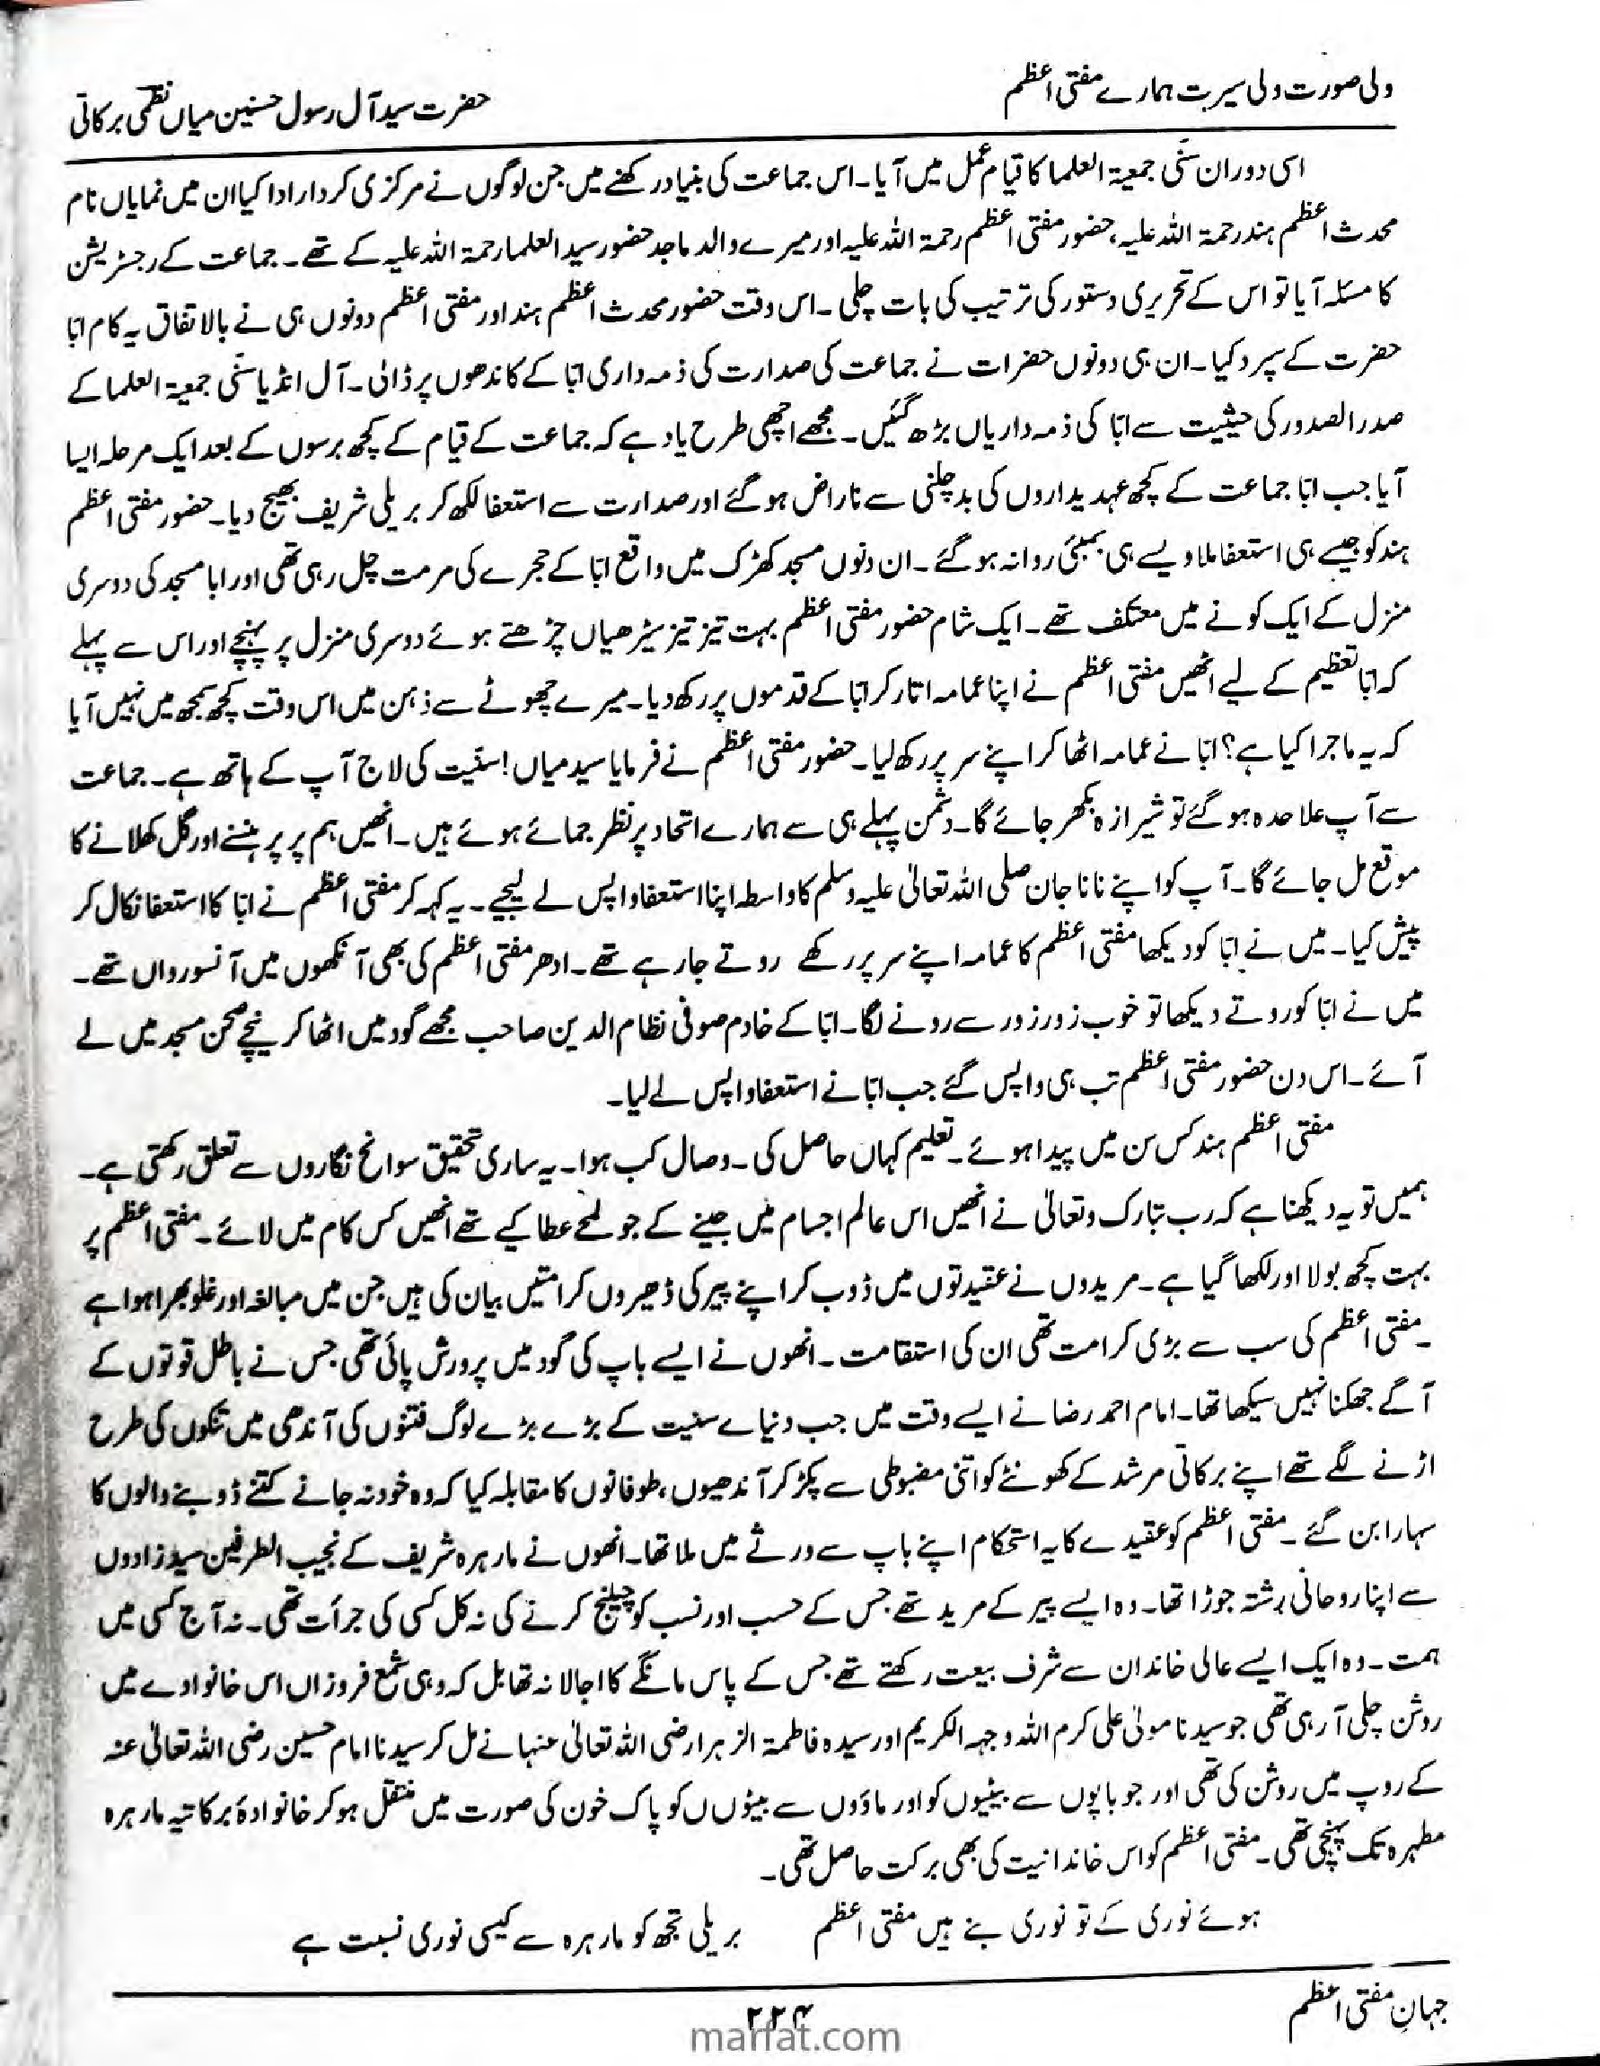 ولی صورت ولی سیرت ہمارے مفتی اعظم
حضرت سید آل رسول حسنین میاں نظمی برکاتی
اسی دوران سنّی جمعیۃ العلما کا قیام عمل میں آیا۔ اس جماعت کی بنیاد رکھنے میں جن لوگوں نے مرکزی کردار ادا کیا ان میں نمایاں نام
محدث اعظم ہند رحمۃ اللہ علیہ، حضور مفتی اعظم رحمۃ اللہ علیہ اور میرے والد ماجد حضور سید العلما رحمۃ اللہ علیہ کے تھے۔ جماعت کے رجسٹریشن
کا مسئلہ آیا تو اس کے تحریری دستور کی ترتیب کی بات چلی۔ اس وقت حضور محدث اعظم ہند اور مفتی اعظم دونوں ہی نے بالاتفاق یہ کام ابّا
حضرت کے سپرد کیا۔ ان ہی دونوں حضرات نے جماعت کی صدارت کی ذمہ داری ابّا کے کاندھوں پر ڈالی۔ آل انڈیا سنّی جمعیۃ العلما کے
صدر الصدور کی حیثیت سے ابّا کی ذمہ داریاں بڑھ گئیں۔ مجھے اچھی طرح یاد ہے کہ جماعت کے قیام کے کچھ برسوں کے بعد ایک مرحلہ ایسا
آیا جب ابّا جماعت کے کچھ عہدیداروں کی بدچلنی سے ناراض ہوگئے اور صدارت سے استعفا لکھ کر بریلی شریف بھیج دیا۔ حضور مفتی اعظم
ہند کو جیسے ہی استعفا ملا ویسے ہی بمبئی روانہ ہوگئے۔ ان دنوں مسجد کھڑک میں واقع ابّا کے حجرے کی مرمت چل رہی تھی اور ابا مسجد کی دوسری
منزل کے ایک کونے میں معتکف تھے۔ ایک شام حضور مفتی اعظم بہت تیز تیز سیڑھیاں چڑھتے ہوئے دوسری منزل پر پہنچے اور اس سے پہلے
کہ ابّا تعظیم کے لیے اٹھیں مفتی اعظم نے اپنا عمامہ اتار کر ابّا کے قدموں پر رکھ دیا۔ میرے چھوٹے سے ذہن میں اس وقت کچھ سمجھ میں نہیں آیا
کہ یہ ماجرا کیا ہے؟ ابّا نے عمامہ اٹھا کر اپنے سر پر رکھ لیا۔ حضور مفتی اعظم نے فرمایا سید میاں! سنّیت کی لاج آپ کے ہاتھ ہے۔ جماعت
سے آپ علاحدہ ہوگئے تو شیرازہ بکھر جائے گا۔ دشمن پہلے ہی سے ہمارے اتحاد پر نظر جمائے ہوئے ہیں۔ انھیں ہم پر پر ہنسنے اور گل کھلانے کا
موقع مل جائے گا۔ آپ کو اپنے نانا جان صلی اللہ تعالیٰ علیہ وسلم کا واسطہ اپنا استعفا واپس لے لیجیے۔ یہ کہہ کر مفتی اعظم نے ابّا کا استعفا نکال کر
پیش کیا۔ میں نے ابّا کو دیکھا مفتی اعظم کا عمامہ اپنے سر پر رکھے روتے جارہے تھے۔ ادھر مفتی اعظم کی بھی آنکھوں میں آنسو رواں تھے۔
میں نے ابّا کو روتے دیکھا تو خوب زور زور سے رونے لگا۔ ابّا کے خادم صوفی نظام الدین صاحب مجھے گود میں اٹھا کر نیچے صحن مسجد میں لے
آئے۔ اس دن حضور مفتی اعظم تب ہی واپس گئے جب ابّا نے استعفا واپس لے لیا۔
مفتی اعظم ہند کس سن میں پیدا ہوئے۔ تعلیم کہاں حاصل کی۔ وصال کب ہوا۔ یہ ساری تحقیق سوانح نگاروں سے تعلق رکھتی ہے۔
ہمیں تو یہ دیکھنا ہے کہ رب تبارک وتعالیٰ نے انھیں اس عالم اجسام میں جینے کے جو لمحے عطا کیے تھے انھیں کس کام میں لائے۔ مفتی اعظم پر
بہت کچھ بولا اور لکھا گیا ہے۔ مریدوں نے عقیدتوں میں ڈوب کر اپنے پیر کی ڈھیروں کرامتیں بیان کی ہیں جن میں مبالغہ اور غلو بھرا ہوا ہے
۔ مفتی اعظم کی سب سے بڑی کرامت تھی ان کی استقامت۔ انھوں نے ایسے باپ کی گود میں پرورش پائی تھی جس نے باطل قوتوں کے
آگے جھکنا نہیں سیکھا تھا۔ امام احمد رضا نے ایسے وقت میں جب دنیاے سنیت کے بڑے بڑے لوگ فتنوں کی آندھی میں تنکوں کی طرح
اڑنے لگے تھے اپنے برکاتی مرشد کے کھونٹے کو اتنی مضبوطی سے پکڑ کر آندھیوں، طوفانوں کا مقابلہ کیا کہ وہ خود نہ جانے کتنے ڈوبنے والوں کا
سہارا بن گئے۔ مفتی اعظم کو عقیدے کا یہ استحکام اپنے باپ سے ورثے میں ملا تھا۔ انھوں نے مارہرہ شریف کے نجیب الطرفین سیدزادوں
سے اپنا روحانی رشتہ جوڑا تھا۔ وہ ایسے پیر کے مرید تھے جس کے حسب اور نسب کو چیلنج کرنے کی نہ کل کسی کی جرأت تھی۔ نہ آج کسی میں
ہمت۔ وہ ایک ایسے عالی خاندان سے شرف بیعت رکھتے تھے جس کے پاس مانگے کا اجالا نہ تھا بل کہ وہی شمع فروزاں اس خانوادے میں
روشن چلی آرہی تھی جو سیدنا مولیٰ علی کرم اللہ وجہہ الکریم اور سیدہ فاطمۃ الزہرا رضی اللہ تعالیٰ عنہما نے مل کر سیدنا امام حسین رضی اللہ تعالیٰ عنہ
کے روپ میں روشن کی تھی اور جو باپوں سے بیٹیوں کو اور ماؤوں سے بیٹوں ں کو پاک خون کی صورت میں منتقل ہوکر خانوادۂ برکاتیہ مارہرہ
مطہرہ تک پہنچی تھی۔ مفتی اعظم کو اس خاندانیت کی بھی برکت حاصل تھی۔
ہوئے نوری کے تو نوری بنے ہیں مفتی اعظم    بریلی تجھ کو مارہرہ سے کیسی نوری نسبت ہے
جہانِ مفتی اعظم
۲۲۴
marfat.com